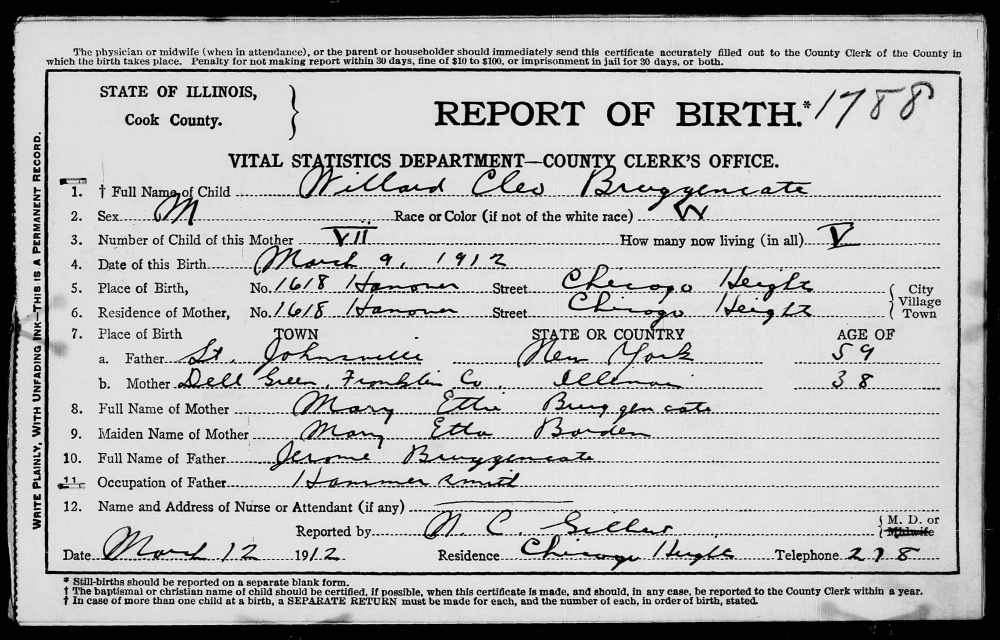 The physician or midwife (when in attendance), or the parent or householder should immediately send this certificate accurately filled out to the County Clerk of the County in
which the birth takes place. Penalty for not making report within 30 days, fine of $10 to $100, or imprisonment in jail for 30 days, or both.
STATE OF ILLINOIS,
Cook County.
REPORT OF BIRTH.* 1788
VITAL STATISTICS DEPARTMENT—COUNTY CLERK'S OFFICE.
1. † Full Name of Child Willard Cleo Bruggencate
2. Sex M Race or Color (if not of the white race) W
3. Number of Child of this Mother VII How many now living (in all) V
4. Date of this Birth March 9, 1912
5. Place of Birth, No. 1618 Hanover Street Chicago Height { City
6. Residence of Mother, No. 1618 Hanover Street Chicago Height Village Town
7. Place of Birth TOWN STATE OR COUNTRY AGE OF
a. Father St. Johnsville New York 59
b. Mother Dell Green, Franklin Co. Illinois 38
8. Full Name of Mother Mary Etta Bruggencate
9. Maiden Name of Mother Mary Etta Borden
10. Full Name of Father Jerome Bruggencate
11. Occupation of Father Hammer smith
12. Name and Address of Nurse or Attendant (if any)
Reported by N. C. Gilbert { M. D. or Midwife
Date March 12 1912 Residence Chicago Height Telephone 278
* Still-births should be reported on a separate blank form.
† The baptismal or christian name of child should be certified, if possible, when this certificate is made, and should, in any case, be reported to the County Clerk within a year.
† In case of more than one child at a birth, a SEPARATE RETURN must be made for each, and the number of each, in order of birth, stated.
WRITE PLAINLY, WITH UNFADING INK—THIS IS A PERMANENT RECORD.